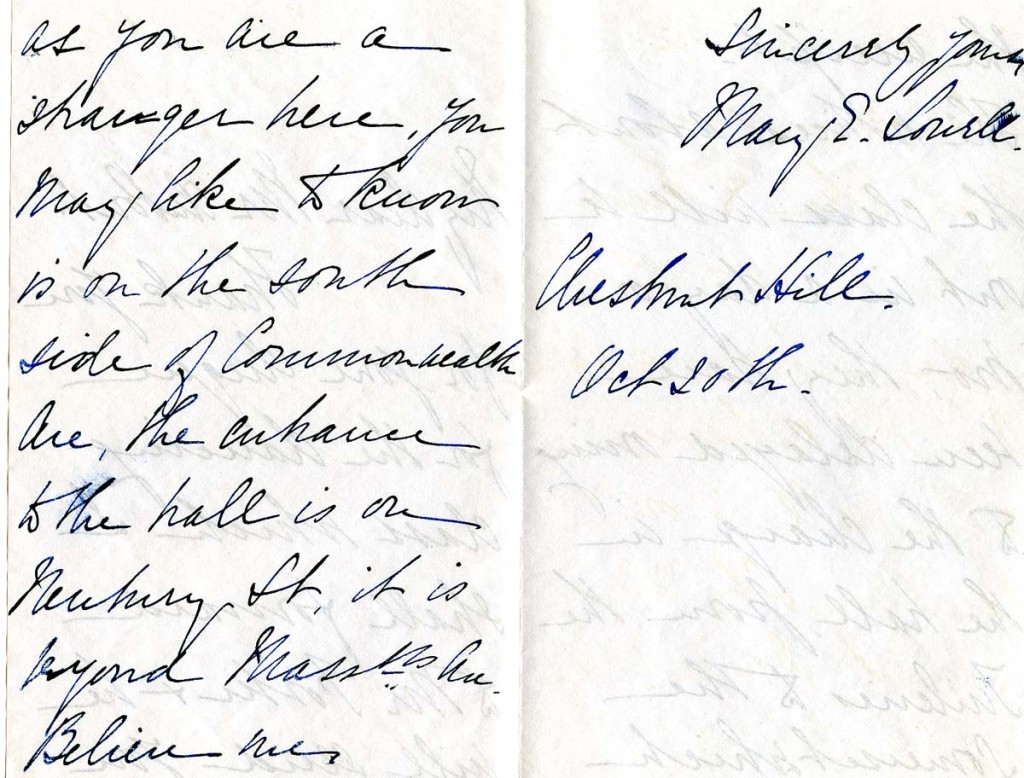 as you are a
stranger here, you
may like to know
is on the south
side of Commonwealth
Ave, the entrance
to the hall is on
Newbury St. it is
beyond Masstts Av.
Believe me,
Sincerely yours
Mary E. Lowell.
Chestnut Hill.
Oct 20th.